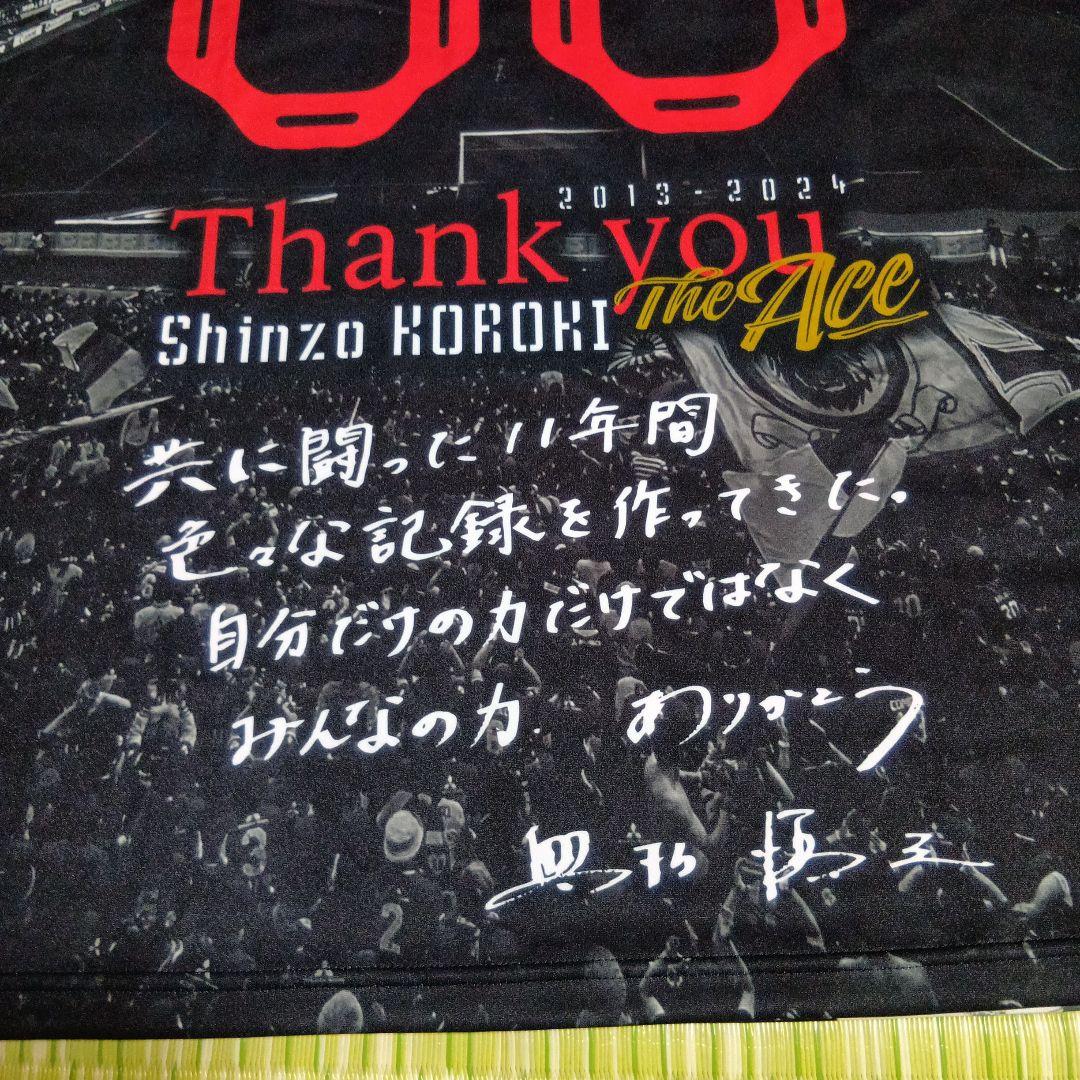 2013-2024
Thank you
The Ace
Shinzo KOROKI
共に闘った11年間
色々な記録を作ってきた。
自分だけの力だけではなく
みんなの力 ありがとう
興梠 慎三
3
2
20